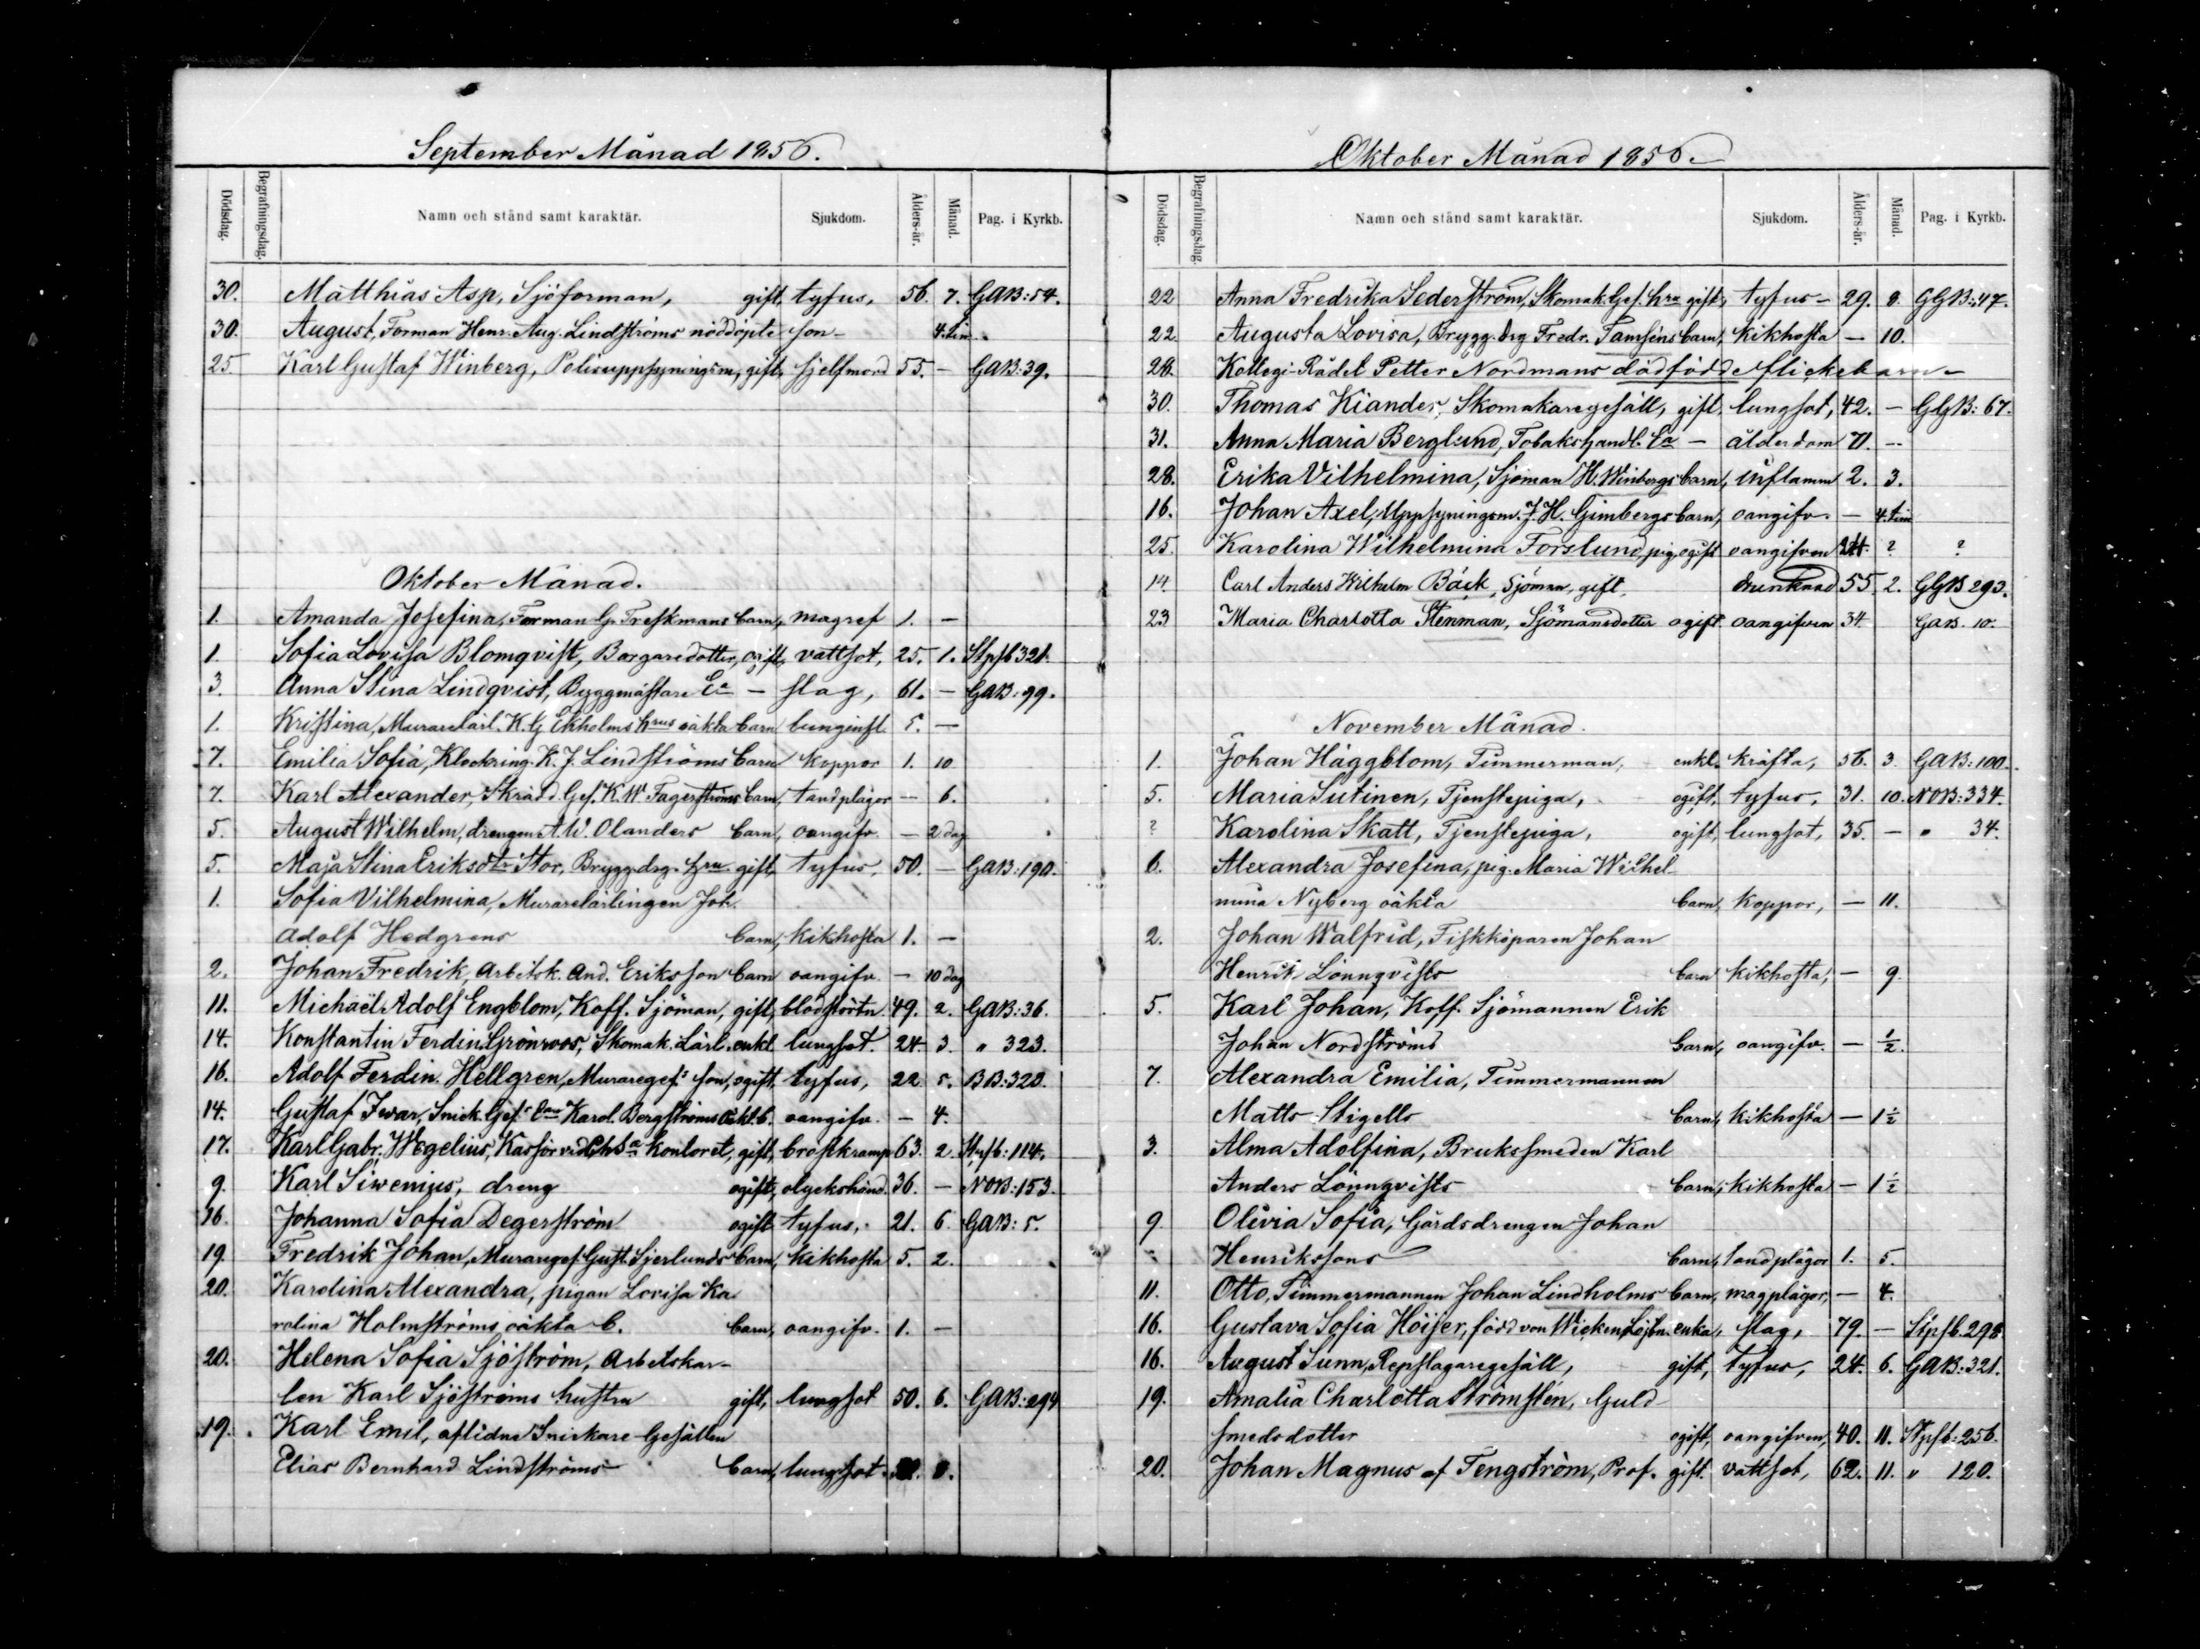 September Månad 1856.
Dödsdag. Begrafningsdag. Namn och stånd samt karaktär. Sjukdom. Ålders-år. Månad. Pag. i Kyrkb.
30. Matthias Asp, Sjöforman, gift, tyfus, 56. 7. GAB:54.
30. August, Forman Henr. Aug. Lindströms nöddöpte son - 4. tim
25 Karl Gustaf Winberg, Polisuppsyningsm, gift, sjelfmord 55. - GAB:39.
Oktober Månad.
1. Amanda Josefina, Forman G. Freskmans barn, magref 1. -
1. Sofia Lovisa Blomqvist, Borgaredotter, ogift, vattsot, 25. 1. Stpfb 321.
3. Anna Stina Lindqvist, Byggmästare Ea - slag, 61. - GAB:99.
1. Kristina, Murarelärl. K. G Ekholms hrus oäkta barn lunginfl. 5. -
7. Emilia Sofia, Klockring. K. J. Lindströms barn koppor 1. 10
7. Karl Alexander, Skrädd. Ges. K. W. Fagerströms barn, tandplågor - 6.
5. August Wilhelm, drengen A. W. Olanders barn, oangifv. - 2 dag
5. Maja Stina Eriksdtr Stor, Brygg. drg. hru gift, tyfus, 50. - GAB:190.
1. Sofia Vilhelmina, Murarelärlingen Joh.
Adolf Hedgrens barn, kikhosta 1. -
2. Johan Fredrik, Arbetsk. And. Eriksson barn oangifv. - 10 dag
11. Michaël Adolf Engblom, Koff. Sjöman, gift, blodstörtn. 49. 2. GAB:36.
14. Konstantin Ferdin. Grönroos, Skomak. Lärl. enkl. lungsot. 24. 3. " 323.
16. Adolf Ferdin. Hellgren, Murareges:s son, ogift, tyfus, 22 5. BB:320.
14. Gustaf Ivar, Snick. Ges:s Eas Karol. Bergströms oäkt. b. oangifv. - 4.
17. Karl Gabr. Wegelius, Kassör vid kontoret, gift, bröstkramp 63. 2. Stpfb:114.
9. Karl Siwenius, dreng ogift, olyckshänd. 36. - NOB:153.
16. Johanna Sofia Degerström ogift tyfus, 21. 6. GAB:5.
19. Fredrik Johan, Murareges. Gust. Sjerlunds barn, kikhosta 5. 2.
20. Karolina Alexandra, pigan Lovisa Ka
rolina Holmströms oäkta b. barn, oangifv. 1. -
20. Helena Sofia Sjöström, Arbetskar-
len Karl Sjöströms hustru gift, lungsot 50. 6. GAB:294
19. Karl Emil, aflidne Snickare Gesällen
Elias Bernhard Lindströms barn, lungsot. 8.
Oktober Månad 1856.
Dödsdag. Begrafningsdag. Namn och stånd samt karaktär. Sjukdom. Ålders-år. Månad. Pag. i Kyrkb.
22 Anna Fredrika Sederström, Skomak. Ges. hru gift, tyfus - 29. 8. GGB:47.
22. Augusta Lovisa, Brygg. drg Fredr. Tamséns barn, kikhosta - 10.
28. Kollegi-Rådet Petter Nordmans dödfödde flickebarn -
30. Thomas Kiander, Skomakaregesäll, gift, lungsot, 42. - GGB:67.
31. Anna Maria Berglund, Tobakshandl. Ea - ålderdom 71. --
28. Erika Vilhelmina, Sjöman H. Winbergs barn, inflamm 2. 3.
16. Johan Axel, Uppsyningsm. J. H. Gimbergs barn, oangifv. - 4. tim
25. Karolina Wilhelmina Forslund, pig. ogift oangifven 24. ? ?
14. Carl Anders Wilhelm Bäck, Sjöman, gift, drunknad 55 2. GGB 293.
23 Maria Charlotta Stenman, Sjömansdotter ogift oangifven 34 GAB. 10.
November Månad.
1. Johan Häggblom, Timmerman, enkl. kräfta, 56. 3. GAB:100.
5. Maria Sutinen, Tjenstepiga, ogift, tyfus, 31. 10. NOB:334.
? Karolina Skatt, Tjenstepiga, ogift, lungsot, 35. - " 34.
6. Alexandra Josefina, pig. Maria Wilhel-
mina Nyberg oäkta barn, koppor, - 11.
2. Johan Walfrid, Fiskköparen Johan
Henrik Lönnqvists barn kikhosta, - 9.
5. Karl Johan, Koff. Sjömannen Erik
Johan Nordströms barn, oangifv. - ½.
7. Alexandra Emilia, Timmermannen
Matts Stigells barn, kikhosta - 1½
3. Alma Adolfina, Bruksmeden Karl
Anders Lönnqvists barn, kikhosta - 1½
9 Olivia Sofia, Gårdsdrengen Johan
Henrikssons barn, tandplågor 1. 5.
11. Otto, Timmermannen Johan Lindholms barn, magplågor, - 4.
16. Gustava Sofia Höijer, född von Wicken, Löjtn. enka, slag, 79. - Stpfb. 298
16. August Sunn, Repslagaregesäll, gift, tyfus, 24. 6. GAB:321.
19. Amalia Charlotta Strömstén, Guld
smedsdotter ogift, oangifven, 40. 11. Stpfb:256.
20. Johan Magnus af Tengström, Prof. gift. vattsot, 62. 11. " 120.